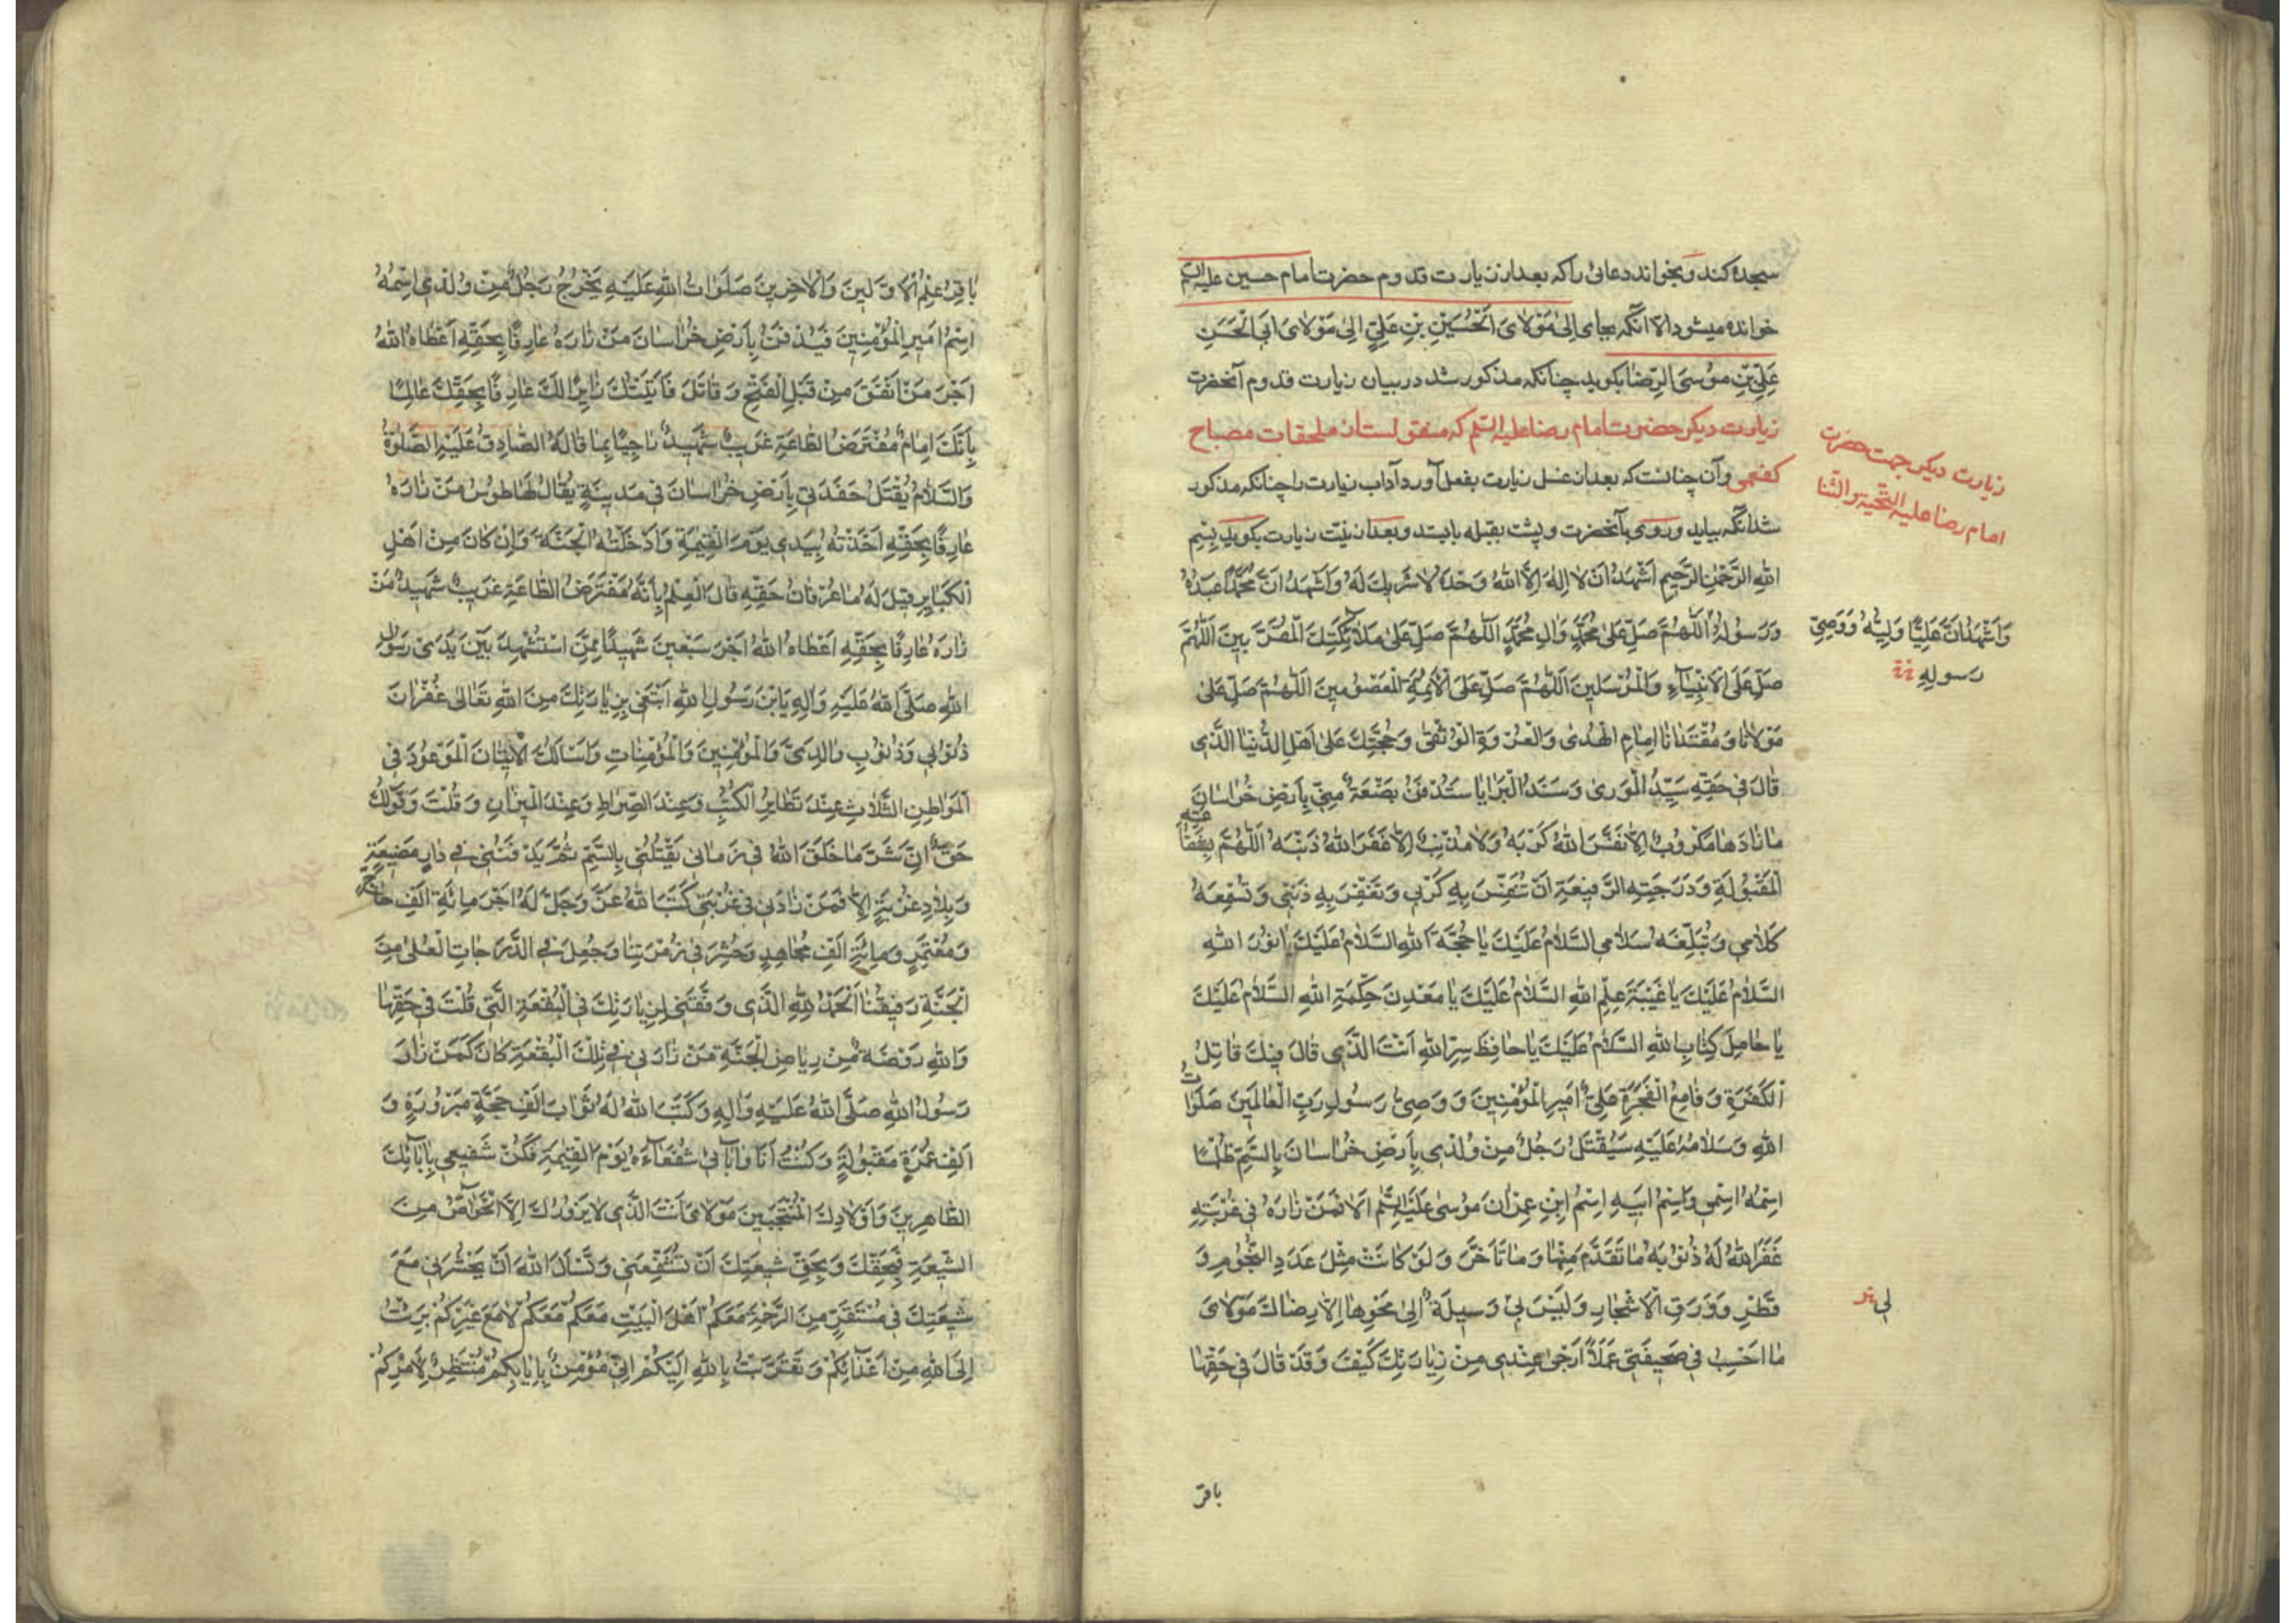 سجده کند و بخواند دعائی را که بعد از زیارت قدوم حضرت امام حسین علیه السلم
خوانده میشود الا آنکه بجای اِلیٰ مَوْلایَ الْحُسَیْنِ بْنِ عَلِیٍّ اِلیٰ مَوْلایَ اَبِی الْحَسَنِ
عَلِیِّ بْنِ مُوسَی الرِّضا بکوید چنانکه مذکور شد در بیان زیارت قدوم آنحضرت
زیارت دیکر حضرت امام رضا علیه السلم که منقولست از ملحقات مصباح
کفعمی و آن چنانست که بعد از غسل زیارت بفعل آورد آداب زیارت را چنانکه مذکور
شد آنکه بیاید و روی بآنحضرت و پشت بقبله بایستد و بعد از نیّت زیارت بکوید بِسْمِ
اللهِ الرَّحْمٰنِ الرَّحِیمِ اَشْهَدُ اَنْ لا اِلٰهَ اِلاَّ اللهُ وَحْدَهُ لا شَرِیكَ لَهُ وَاَشْهَدُ اَنَّ مُحَمَّداً عَبْدُهُ
وَرَسُولُهُ اَللّٰهُمَّ صَلِّ عَلیٰ مُحَمَّدٍ وَالِ مُحَمَّدٍ اَللّٰهُمَّ صَلِّ عَلیٰ مَلائِکَتِكَ الْمُقَرَّبِینَ اَللّٰهُمَّ
صَلِّ عَلَی الْاَنْبِیَاءِ وَالْمُرْسَلِینَ اَللّٰهُمَّ صَلِّ عَلَی الْاَئِمَّةِ الْمَعْصُومِینَ اَللّٰهُمَّ صَلِّ عَلیٰ
مَوْلانا وَمُقْتَدانا اِمامِ الْهُدیٰ وَالْعُرْوَةِ الْوُثْقیٰ وَحُجَّتِكَ عَلیٰ اَهْلِ الدُّنْیَا الَّذِی
قالَ فِی حَقِّهِ سَیِّدُ الْوَریٰ وَسَنَدُ الْبَرایا سَتُدْفَنُ بَضْعَةٌ مِنِّی بِاَرْضِ خُراسانَ
ما زارَها مَکْرُوبٌ اِلاَّ نَفَّسَ اللهُ کَرْبَهُ وَلا مُذْنِبٌ اِلاَّ غَفَرَ اللهُ ذَنْبَهُ اَللّٰهُمَّ بِشَفاعَتِهِ
الْمَقْبُولَةِ وَدَرَجَتِهِ الرَّفِیعَةِ اَنْ تُنَفِّسَ بِهِ کَرْبِی وَتَغْفِرَ بِهِ ذَنْبِی وَتُسْمِعَهُ
کَلامِی وَتُبَلِّغَهُ سَلامِی السَّلامُ عَلَیْكَ یا حُجَّةَ اللهِ السَّلامُ عَلَیْكَ یا نُورَ اللهِ
السَّلامُ عَلَیْكَ یا عَیْبَةَ عِلْمِ اللهِ السَّلامُ عَلَیْكَ یا مَعْدِنَ حِکْمَةِ اللهِ السَّلامُ عَلَیْكَ
یا حامِلَ کِتابِ اللهِ السَّلامُ عَلَیْكَ یا حافِظَ سِرِّ اللهِ اَنْتَ الَّذِی قالَ فِیكَ قاتِلُ
الْکَفَرَةِ وَقامِعُ الْفَجَرَةِ عَلِیٌّ اَمِیرُ الْمُؤْمِنِینَ وَوَصِیُّ رَسُولِ رَبِّ الْعالَمِینَ صَلَواتُ
اللهِ وَسَلامُهُ عَلَیْهِ سَیُقْتَلُ رَجُلٌ مِنْ وُلْدِی بِاَرْضِ خُراسانَ بِالسَّمِّ ظُلْماً
اِسْمُهُ اِسْمِی وَاِسْمُ اَبِیهِ اِسْمُ ابْنِ عِمْرانَ مُوسیٰ عَلَیْهِ السَّلم اَلا فَمَنْ زارَهُ فِی غُرْبَتِهِ
غَفَرَ اللهُ لَهُ ذُنُوبَهُ ما تَقَدَّمَ مِنْها وَما تَاَخَّرَ وَلَوْ کانَتْ مِثْلَ عَدَدِ النُّجُومِ وَ
قَطْرِ وَوَرَقِ الْاَشْجارِ وَلَیْسَ لِی وَسِیلَةٌ اِلیٰ مَحْوِها اِلاَّ رِضاكَ مَوْلایَ
ما اَحْسِبُ فِی صَحِیفَتِی عَمَلاً اَرْجیٰ عِنْدِی مِنْ زِیارَتِكَ کَیْفَ وَقَدْ قالَ فِی حَقِّها
زیارت دیکر جهت حضرت
امام رضا علیه التحیة والثنا
وَاَشْهَدُ اَنَّ عَلِیًّا وَلِیُّهُ وَوَصِیُّ
رَسولِهِ
لِی
باقر
باقِرُ عِلْمِ الْاَوَّلِینَ وَالْاخِرِینَ صَلَواتُ اللهِ عَلَیْهِ یَخْرُجُ رَجُلٌ مِنْ وُلْدِی اِسْمُهُ
اِسْمُ اَمِیرِ الْمُؤْمِنِینَ فَیُدْفَنُ بِاَرْضِ خُراسانَ مَنْ زارَهُ عارِفاً بِحَقِّهِ اَعْطاهُ اللهُ
اَجْرَ مَنْ اَنْفَقَ مِنْ قَبْلِ الْفَتْحِ وَقاتَلَ فَاَتَیْتُكَ زایِراً لَكَ عارِفاً بِحَقِّكَ عالِماً
بِاَنَّكَ اِمامٌ مُفْتَرَضُ الطَّاعَةِ غَرِیبٌ شَهِیدٌ راجِیاً بِما قالَهُ الصَّادِقُ عَلَیْهِ الصَّلوةُ
وَالسَّلامُ یُقْتَلُ حَفَدَتِی بِاَرْضِ خُراسانَ فِی مَدِینَةٍ یُقالُ لَها طُوسُ مَنْ زارَهُ
عارِفاً بِحَقِّهِ اَخَذْتُهُ بِیَدِی یَوْمَ الْقِیمَةِ وَاَدْخَلْتُهُ الْجَنَّةَ وَاِنْ کانَ مِنْ اَهْلِ
الْکَبایِرِ قِیلَ لَهُ ما عِرْفانُ حَقِّهِ قالَ الْعِلْمُ بِاَنَّهُ مُفْتَرَضُ الطَّاعَةِ غَرِیبٌ شَهِیدٌ مَنْ
زارَهُ عارِفاً بِحَقِّهِ اَعْطاهُ اللهُ اَجْرَ سَبْعِینَ شَهِیداً مِمَّنِ اسْتُشْهِدَ بَیْنَ یَدَیْ رَسُولِ
اللهِ صَلَّی اللهُ عَلَیْهِ وَالِهِ یَا بْنَ رَسُولِ اللهِ اَبْتَغِی بِزِیارَتِكَ مِنَ اللهِ تَعالیٰ غُفْرانَ
ذُنُوبِی وَذُنُوبِ والِدَیَّ وَالْمُؤْمِنِینَ وَالْمُؤْمِناتِ وَاَسْاَلُكَ الْاِتْیانَ الْمَوْعُودَ فِی
الْمَواطِنِ الثَّلاثِ عِنْدَ تَطایُرِ الْکُتُبِ وَعِنْدَ الصِّراطِ وَعِنْدَ الْمِیزانِ وَقُلْتَ وَقَوْلُكَ
حَقٌّ اِنَّ شَرَّ ما خَلَقَ اللهُ فِی زَمانِی یَقْتُلُنِی بِالسَّمِّ ثُمَّ یَدْفِنُنِی فِی دارِ مَضِیعَةٍ
وَبِلادِ غُرْبَةٍ اَلا فَمَنْ زارَنِی فِی غُرْبَتِی کَتَبَ اللهُ عَزَّ وَجَلَّ لَهُ اَجْرَ مِائَةِ اَلْفِ حاجٍّ
وَمُعْتَمِرٍ وَمِائَةِ اَلْفِ مُجاهِدٍ وَحُشِرَ فِی زُمْرَتِنا وَجُعِلَ فِی الدَّرَجاتِ الْعُلیٰ مِنَ
الْجَنَّةِ رَفِیقَنا اَلْحَمْدُ لِلّٰهِ الَّذِی وَفَّقَنِی لِزِیارَتِكَ فِی الْبُقْعَةِ الَّتِی قُلْتَ فِی حَقِّها
وَاللهِ رَوْضَةٌ مِنْ رِیاضِ الْجَنَّةِ مَنْ زارَنِی فِی تِلْكَ الْبُقْعَةِ کانَ کَمَنْ زارَ
رَسُولَ اللهِ صَلَّی اللهُ عَلَیْهِ وَالِهِ وَکَتَبَ اللهُ لَهُ ثَوابَ اَلْفِ حَجَّةٍ مَبْرُورَةٍ وَ
اَلْفِ عُمْرَةٍ مَقْبُولَةٍ وَکُنْتُ اَنَا وَاٰبائِی شُفَعاءَهُ یَوْمَ الْقِیمَةِ فَکُنْ شَفِیعِی بِاٰبائِكَ
الطَّاهِرِینَ وَاَوْلادِكَ الْمُنْتَجَبِینَ مَوْلایَ اَنْتَ الَّذِی لا یَزُورُكَ اِلاَّ الْخَواصُّ مِنَ
الشِّیعَةِ فَبِحَقِّكَ وَبِحَقِّ شِیعَتِكَ اَنْ تُشَفِّعَنِی وَتَسْاَلَ اللهَ اَنْ یَحْشُرَنِی مَعَ
شِیعَتِكَ فِی مُسْتَقَرٍّ مِنَ الرَّحْمَةِ مَعَکُمْ اَهْلَ الْبَیْتِ مَعَکُمْ مَعَکُمْ لا مَعَ غَیْرِکُمْ بَرِئْتُ
اِلَی اللهِ مِنْ اَعْدائِکُمْ وَتَقَرَّبْتُ بِاللهِ اِلَیْکُمْ اِنِّی مُؤْمِنٌ بِاِیابِکُمْ مُنْتَظِرٌ لِاَمْرِکُمْ